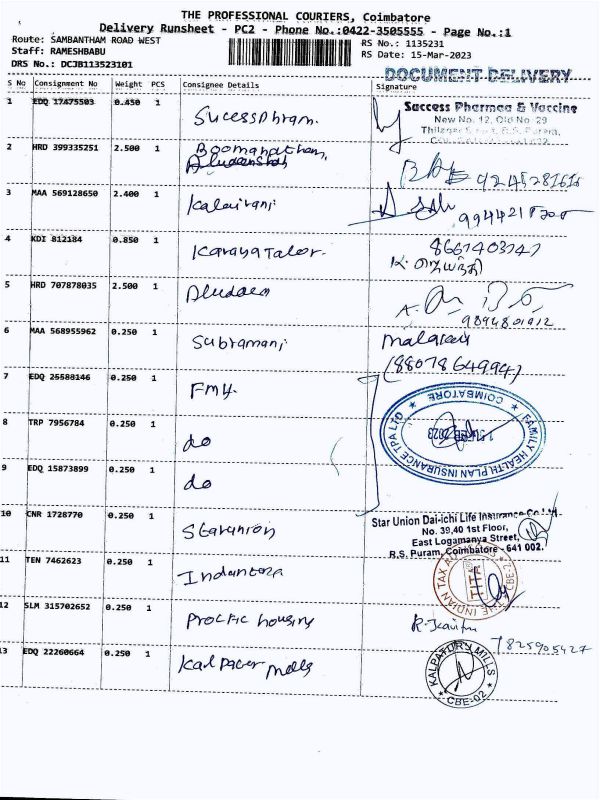 THE PROFESSIONAL COURIERS, Coimbatore
Delivery Runsheet - PC2 - Phone No.:0422-3505555 - Page No.:1
Route: SAMBANTHAM ROAD WEST
RS No.: 1135231
Staff: RAMESHBABU
RS Date: 15-Mar-2023
DRS No.: DCJB113523101
DOCUMENT DELIVERY
S No Consignment No Weight PCS Consignee Details Signature
1 EDQ 17475503 0.450 1 Sucessphram.
Success Pharmaa & Vaccine
New No. 12, Old No 29
2 HRD 399335251 2.500 1 Boomanathan,
9245281616
3 MAA 569128650 2.400 1 Kalairani
4 KDI 812184 0.850 1
8661403747
5 HRD 707878035 2.500 1
9894801912
6 MAA 568955962 0.250 1 Subramani
(8807864994)
7 EDQ 25588146 0.250 1 FMH.
FAMILY HEALTH PLAN INSURANCE TPA LTD ★ COIMBATORE ★
8 TRP 7956784 0.250 1 do
9 EDQ 15873899 0.250 1 do
10 CNR 1728770 0.250 1 Starunion
Star Union Dai-ichi Life Insurance Co Ltd
No. 39,40 1st Floor,
East Logamanya Street,
R.S. Puram, Coimbatore - 641 002.
11 TEN 7462623 0.250 1
THE INDIAN TAX CBE-2
12 SLM 315702652 0.250 1 housing
7825905427
13 EDQ 22260664 0.250 1 mills
KALPATURU MILLS
★ CBE-02 ★